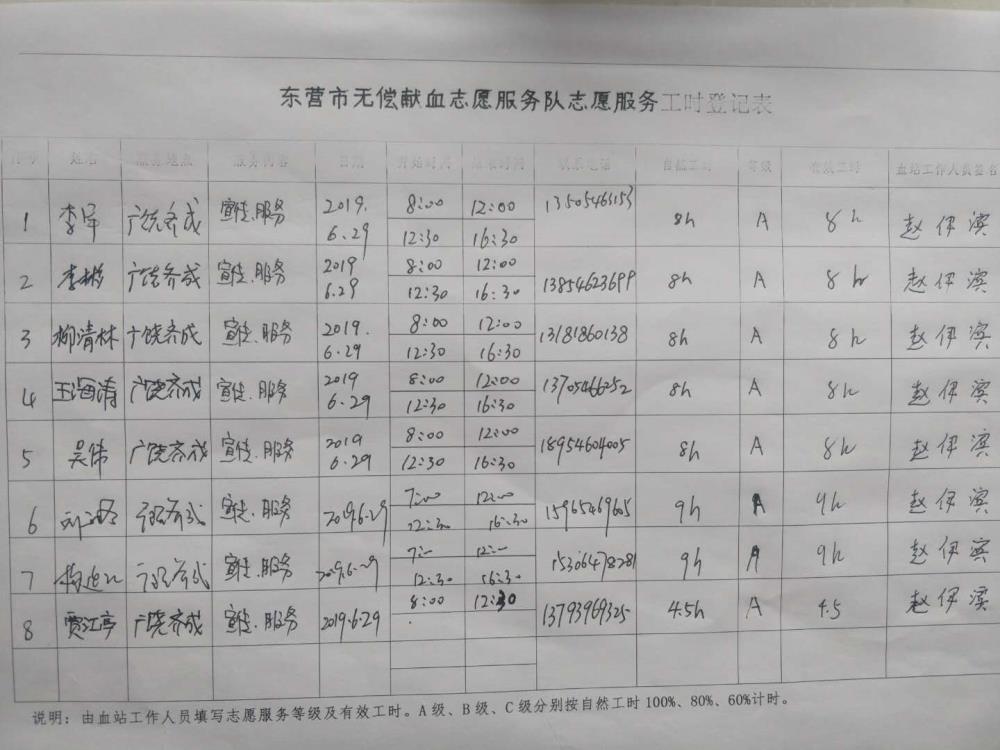 东营市无偿献血志愿服务队志愿服务工时登记表
序号 姓名 服务地点 服务内容 日期 开始时间 结束时间 联系电话 自然工时 等级 有效工时 血站工作人员签名
1 李军 广饶齐成 宣传.服务 2019.6.29 8:00 12:00 13505463153 8h A 8h 赵伊滨
12:30 16:30
2 李彬 广饶齐成 宣传.服务 2019 6.29 8:00 12:00 13854623699 8h A 8h 赵伊滨
12:30 16:30
3 柳清林 广饶齐成 宣传.服务 2019.6.29 8:00 12:00 13181860138 8h A 8h 赵伊滨
12:30 16:30
4 王海涛 广饶齐成 宣传.服务 2019 6.29 8:00 12:00 13705466252 8h A 8h 赵伊滨
12:30 16:30
5 吴伟 广饶齐成 宣传.服务 2019 6.29 8:00 12:00 18954604005 8h A 8h 赵伊滨
12:30 16:30
6 宣传.服务 2019.6.29 7:00 12:00 15965469605 9h A 9h 赵伊滨
12:30 16:30
7 宣传.服务 2019.6.29 7:00 12:00 15306478281 9h A 9h 赵伊滨
12:30 16:30
8 贾江亭 广饶齐成 宣传.服务 2019.6.29 8:00 12:30 13793969325 4.5h A 4.5 赵伊滨
说明：由血站工作人员填写志愿服务等级及有效工时。A级、B级、C级分别按自然工时100%、80%、60%计时。